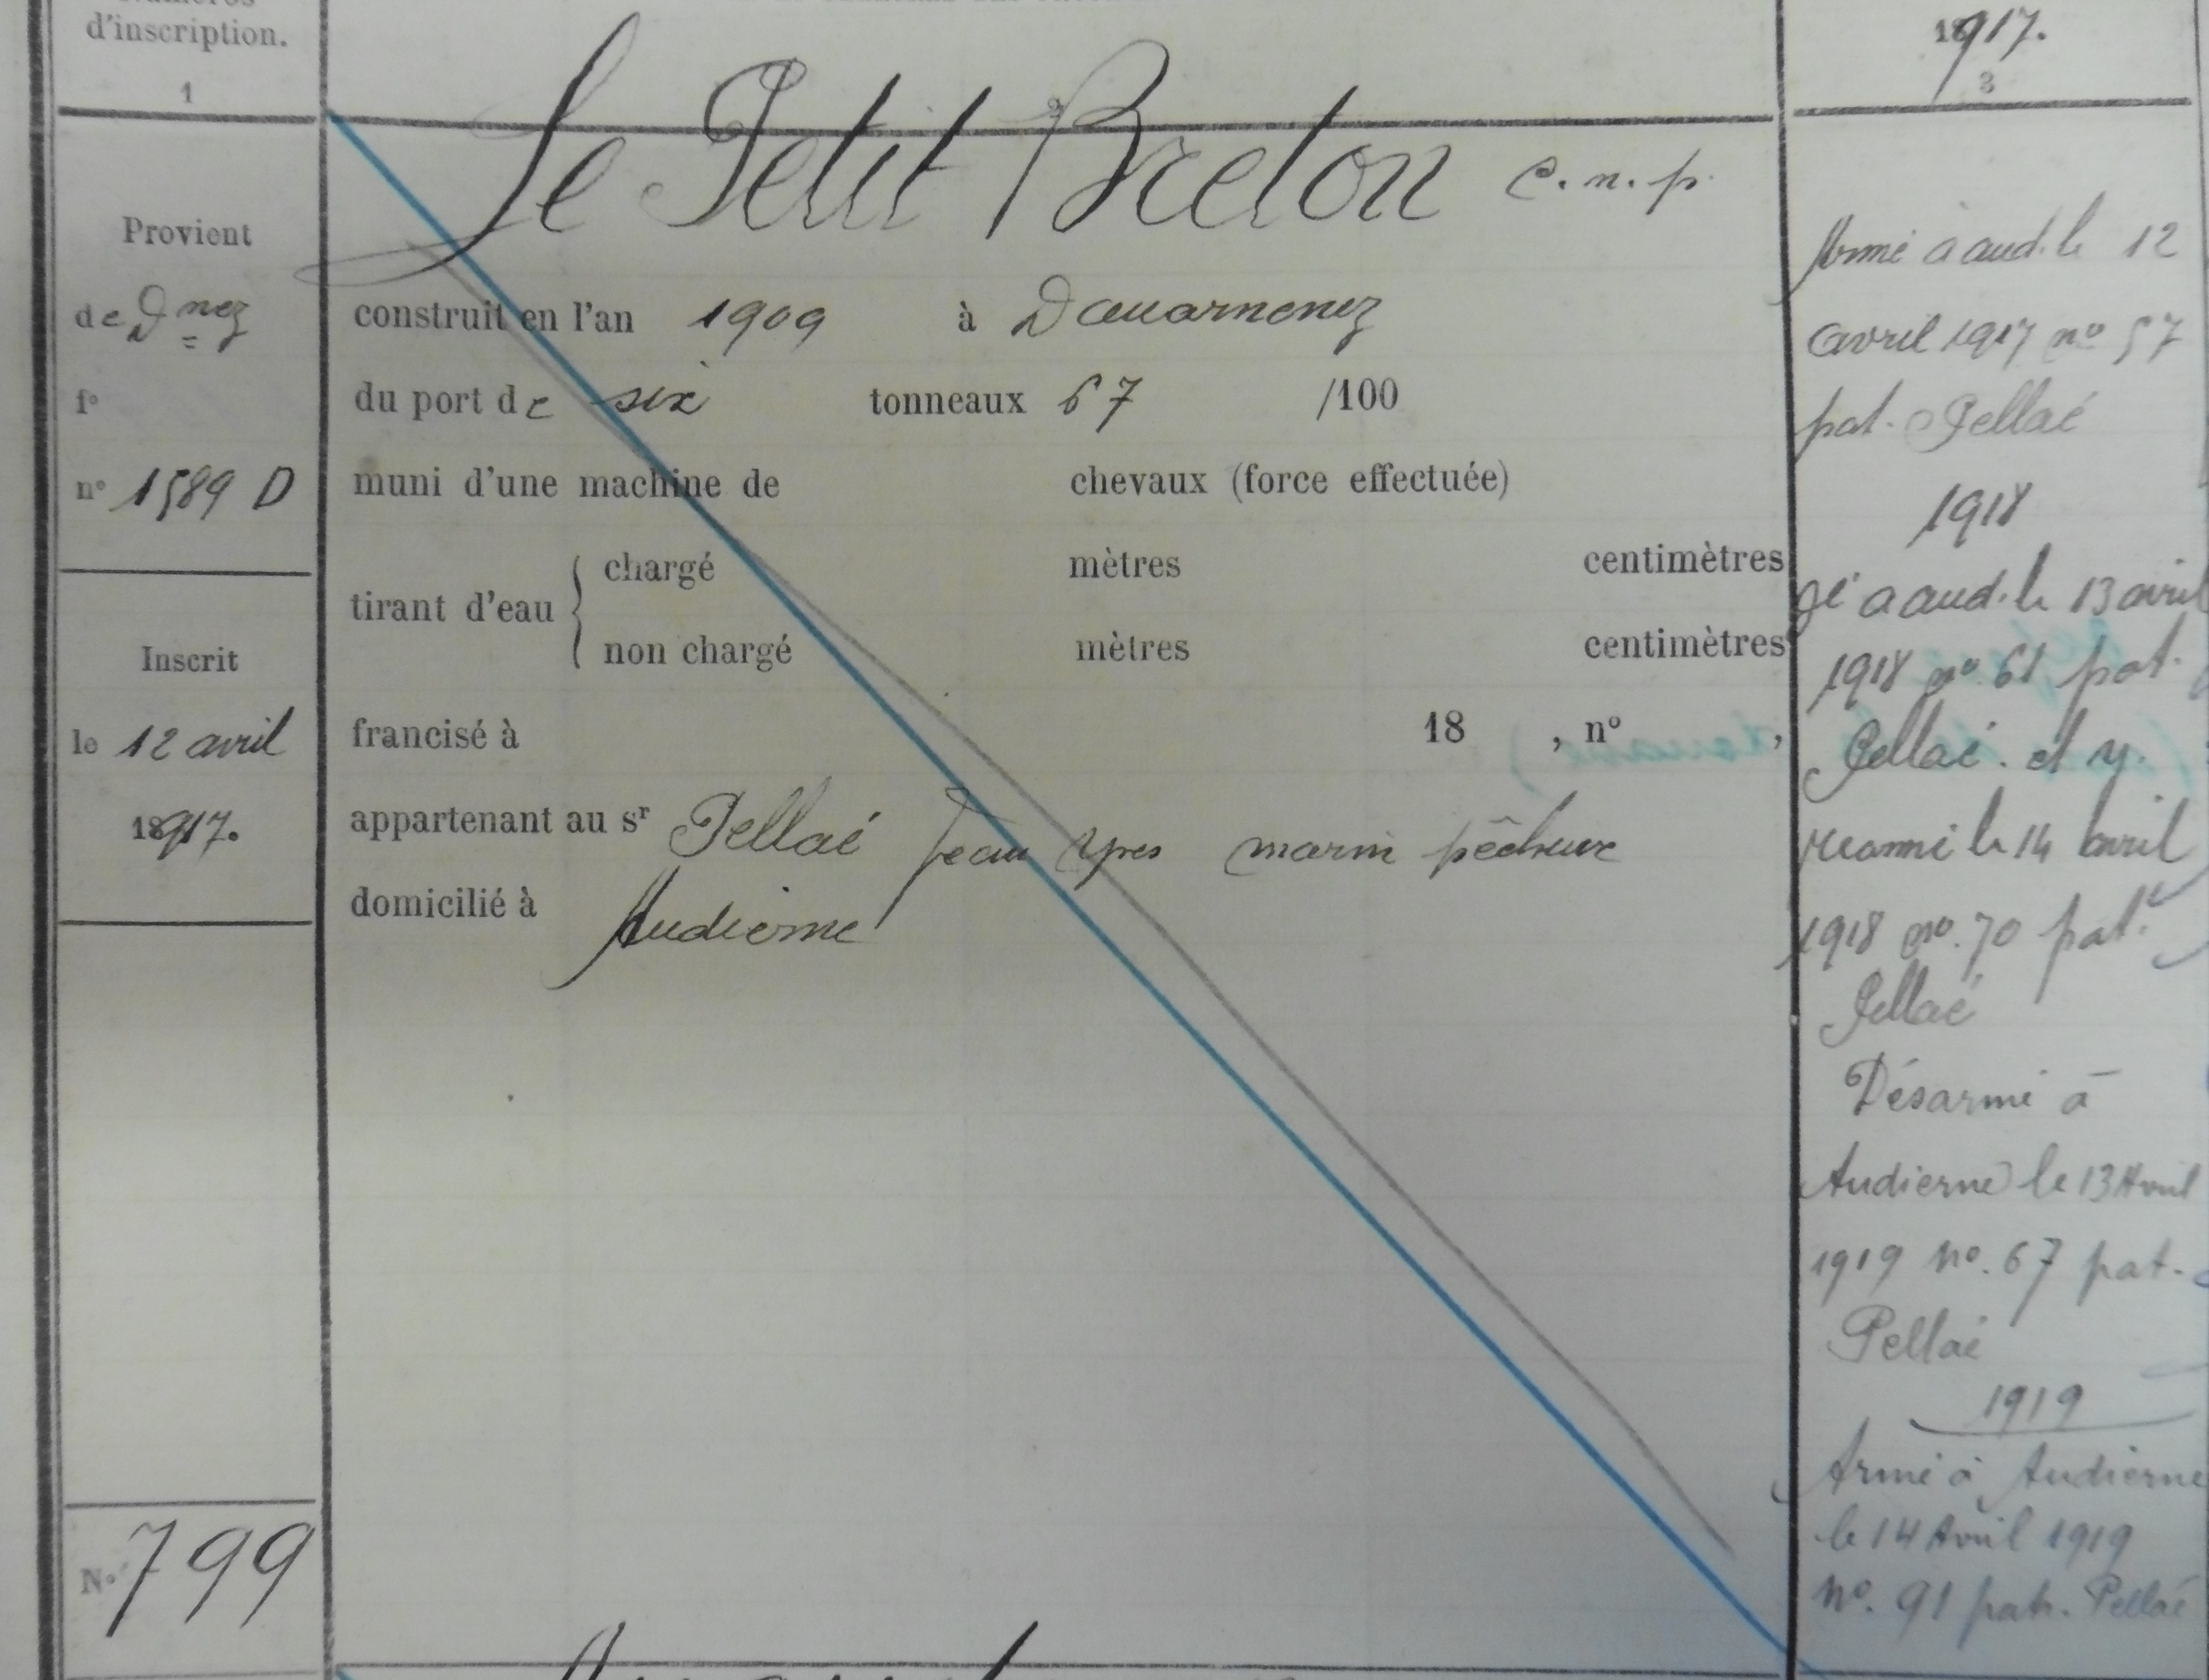 d'inscription.
1
Provient
de Dnez
f°
n° 1589 D
Inscrit
le 12 avril
1917.
N° 799
Le Petit Breton c. n. p.
construit en l'an 1909 à Douarnenez
du port de six tonneaux 67 /100
muni d'une machine de chevaux (force effectuée)
tirant d'eau { chargé mètres centimètres
non chargé mètres centimètres
francisé à 18 , n° ,
appartenant au sr Pellaé Jean Yves marin pêcheur
domicilié à Audierne
1917.
3
Armé à aud. le 12
avril 1917 n° 57
pat. Pellaé
1918
Dé à aud. le 13 avril
1918 n° 61 pat.
Pellaé. et y.
réarmé le 14 avril
1918 n°. 70 pat.
Pellaé
Désarmé à
Audierne le 13 Avril
1919 N°. 67 pat.
Pellaé
1919
Armé à Audierne
le 14 Avril 1919
N°. 91 pat. Pellaé